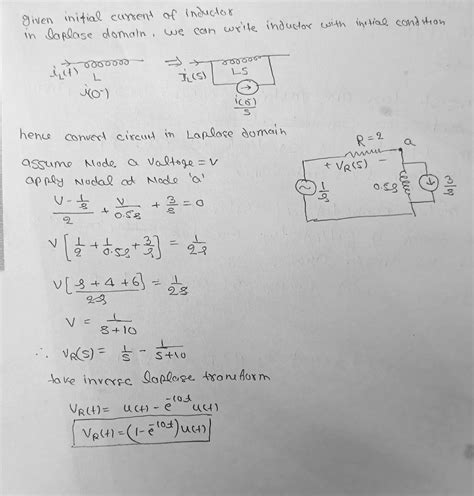 given initial current of inductor
in laplase domain, we can write inductor with initial condition
iL(t) L i(0⁻) ⇒ iL(s) LS i(0⁻)/s
hence convert circuit in Laplase domain
assume Node a voltage = V
apply Nodal at Node 'a'
(V - 1/s)/2 + V/0.5s + 3/s = 0
R = 2 a + VR(s) - 1/s 0.5s 3/s
V[1/2 + 1/0.5s + 3/s] = 1/2s
V[(s + 4 + 6)/2s] = 1/2s
V = 1/(s+10)
∴ VR(s) = 1/s - 1/(s+10)
take inverse laplase transform
VR(t) = u(t) - e^-10t u(t)
VR(t) = (1 - e^-10t) u(t)